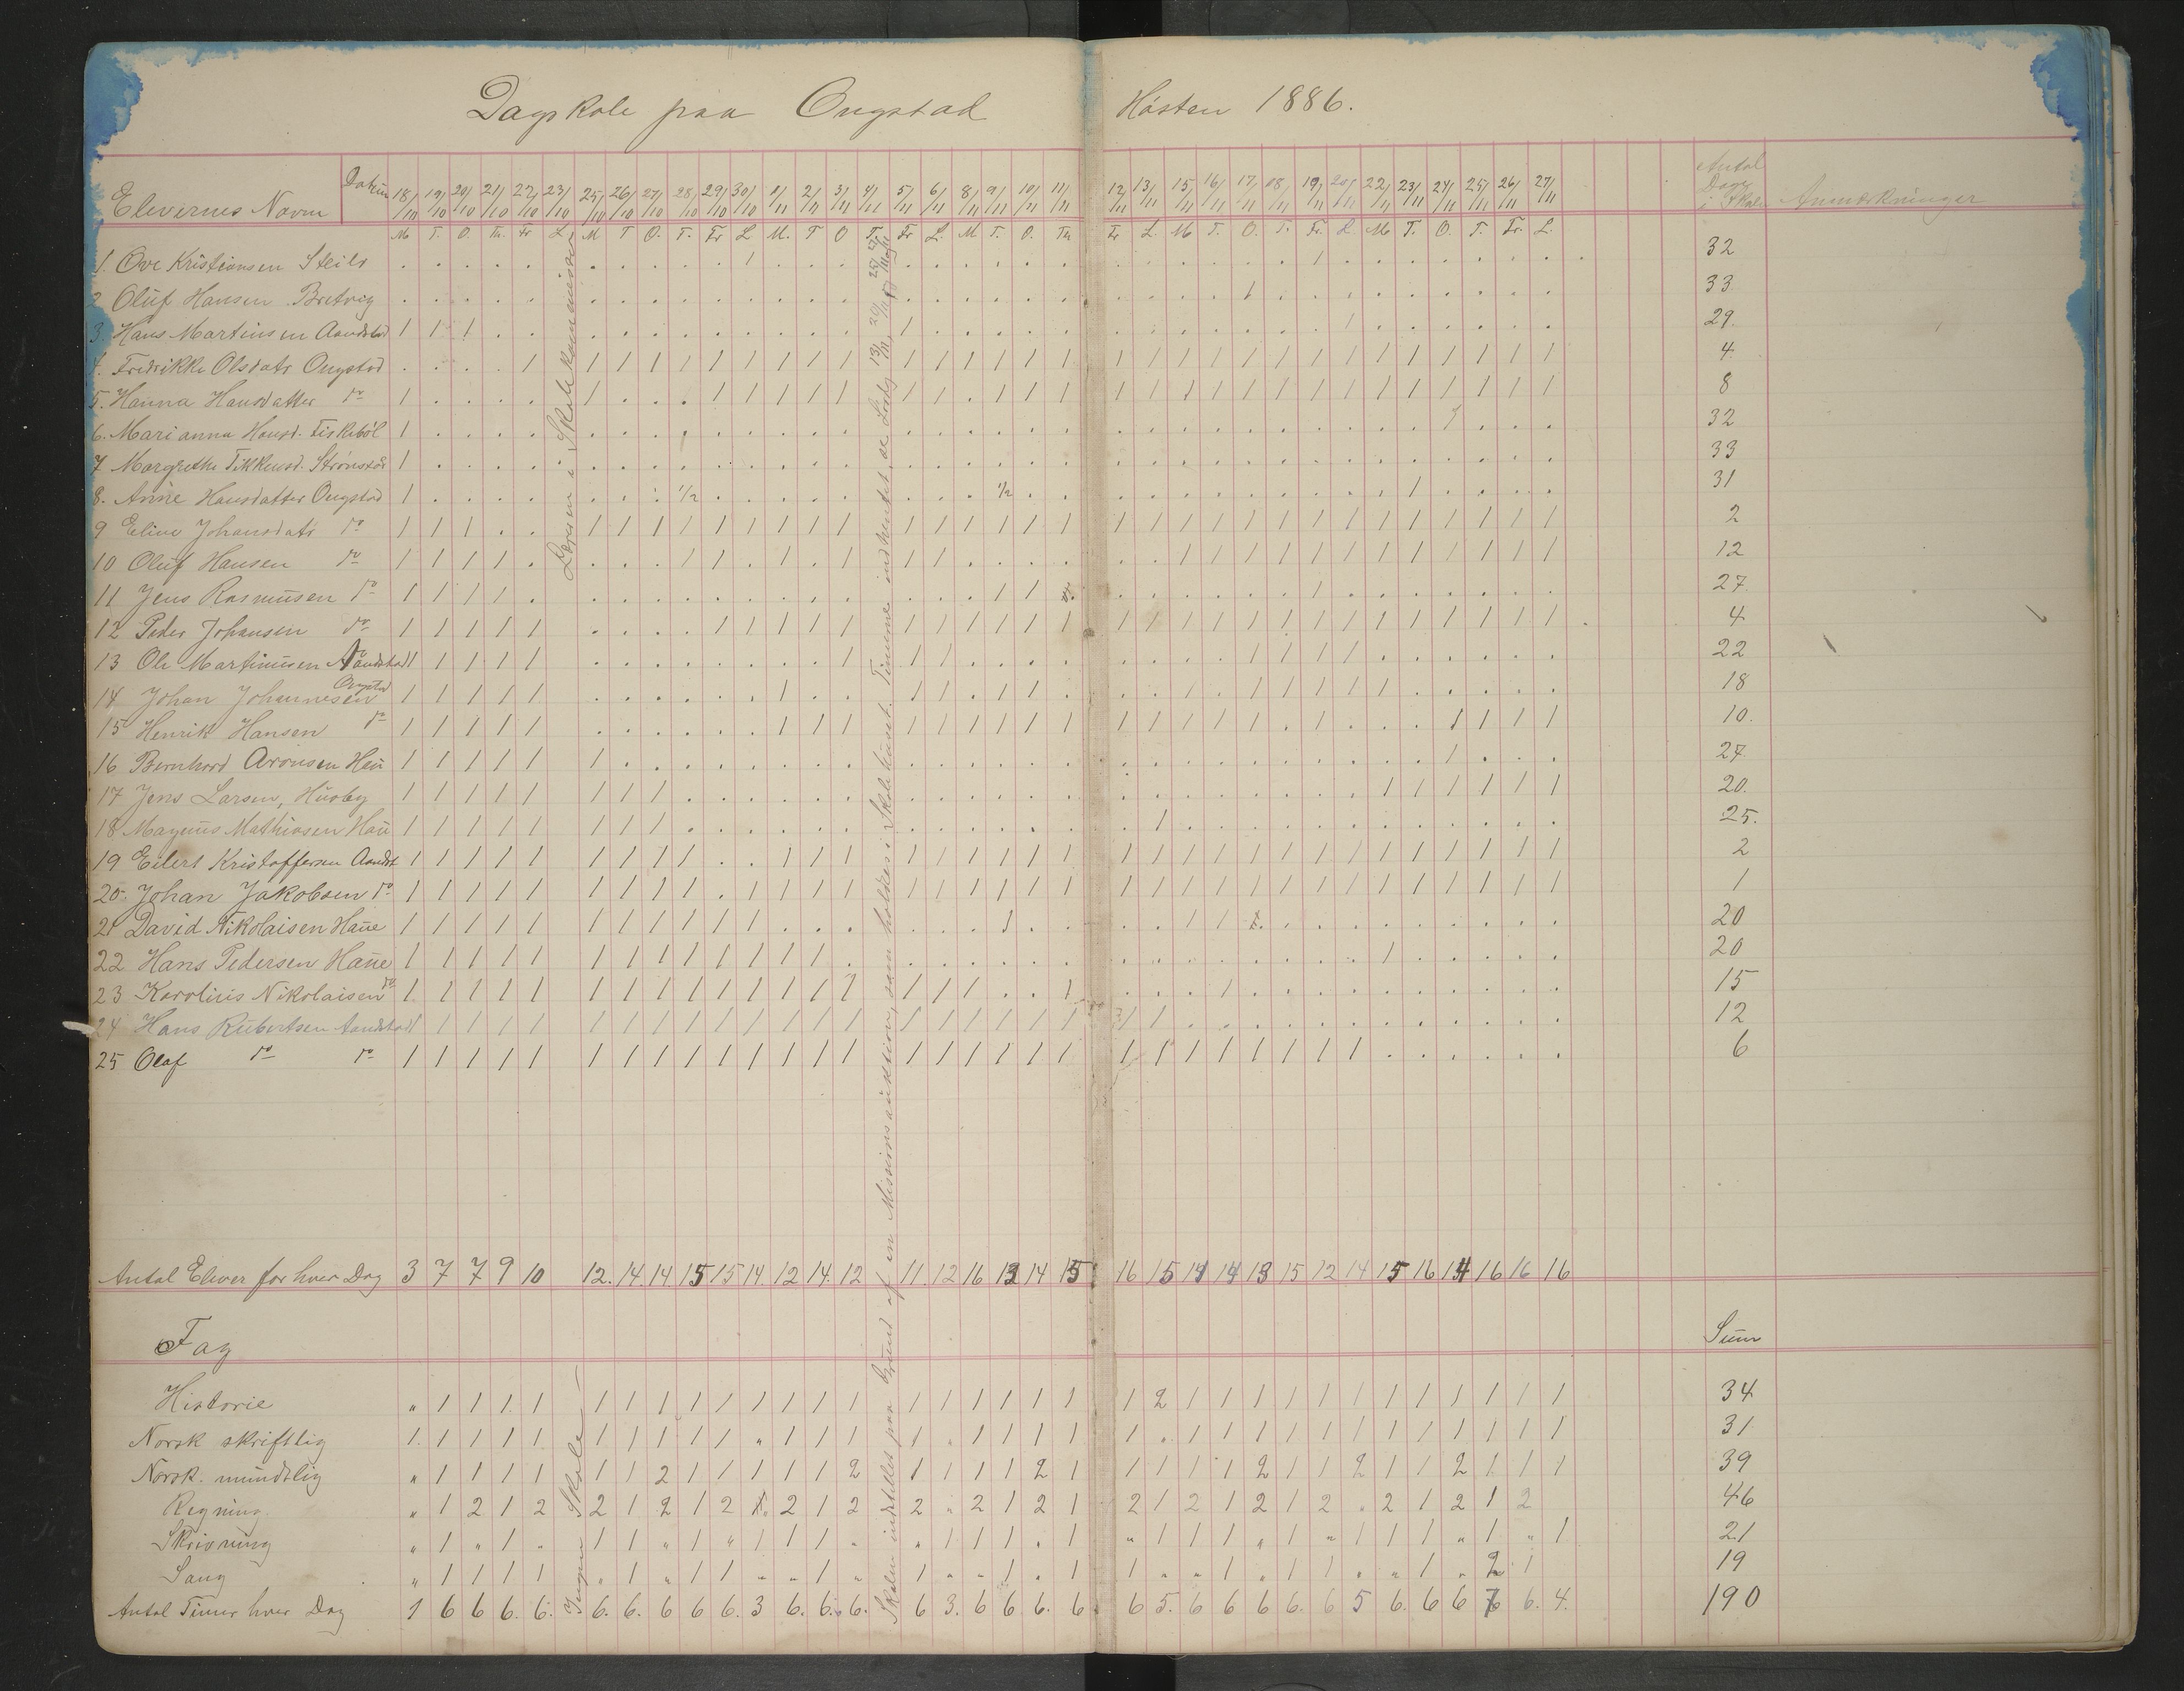 Dagskole paa Ongstad Hösten 1886.
Elevernes Navn Datum 18/10 19/10 20/10 21/10 22/10 23/10 25/10 26/10 27/10 28/10 29/10 30/10 1/11 2/11 3/11 4/11 5/11 6/11 8/11 9/11 10/11 11/11 12/11 13/11 15/11 16/11 17/11 18/11 19/11 20/11 22/11 23/11 24/11 25/11 26/11 27/11 Antal Dage i Skole Anmærkninger
M T. O. Th. Fr L. M T O. T. Fr L M. T O T. Fr L. M T. O. Th Fr L. M T. O. T. Fr. L. M T. O. T. Fr. L.
1. Ove Kristiansen Steilo 32
2 Oluf Hansen Bretvig 33
3. Hans Martinsen Aandstad 29.
4. Fredrikke Olsdatr Ongstad 4
5. Hanna Hansdatter do 8
6. Marianna Hansd. Fiskeböl 32
7 Margrethe Tikkensd. Strønstad 33
8. Anne Hansdatter Ongstad 1/2 1/2 31
9 Eline Johansdatr do 2
10 Oluf Hansen do 12
11 Jens Rasmusen do 27
12 Peder Johansen do 4
13 Ole Martinusen Aandstad 22
14 Johan Johannesen Ongstad 18
15 Henrik Hansen do 10.
16 Bernhard Aronsen Hau 27
17 Jens Larsen, Husby 20.
18 Magnus Mathiasen Hau 25.
19 Eilert Kristoffersen Aandst 2
20. Johan Jakobsen do 1
21 David Nikolaisen Haue 20
22 Hans Pedersen Haue 20
23 Karolius Nikolaisen do 15
24 Hans Rubertsen Aandstad 12
25 Olaf do do 6
Læreren i Skolekommission
Ingen Skole
Skolen indstilles paa Grund af en Missionsauktion, som holdes i Skolehuset. Timerne indhentet
Antal Elever for hver Dag 3 7 7 9 10 12. 14. 14 15 15 14 12 14 12 11 12 16 13 14 15 16 15 14 14 13 15 12 14 15 16 14 16 16 16
Fag Sum
Historie „ 1 1 1 1 1 1 1 1 1 1 1 1 1 1 1 1 1 1 1 1 2 1 1 1 1 1 1 1 1 1 1 1 1 34
Norsk skriftlig 1. 1 1 1 1 1 1 1 1 1 „ 1 1 1 1 „ 1 1 1 1 1 „ 1 1 1 1 1 1 1 1 1 1 1 1 31
Norsk mundtlig „ 1 1 1 1 1 1 2 1 1 1 1 1 2 1 1 1 1 2 1 1 1 1 1 2 1 1 2 1 1 2 1 1 1 39
Regning „ 1 2 1 2 2 1 2 1 2 1 2 1 2 2 „ 2 1 2 1 2 1 2 1 2 1 2 „ 2 1 2 1 2 46
Skrivning „ 1 „ 1 „ 1 1 „ 1 „ 1 1 1 „ „ 1 1 1 „ 1 „ 1 1 1 „ 1 „ 1 1 1 „ 1 „ 1 21
Sang „ 1 1 1 1 „ 1 „ 1 1 „ „ 1 „ 1 „ „ 1 „ 1 1 „ „ 1 „ 1 1 „ „ 1 „ 2 1 19
Antal Timer hver Dag 1 6 6 6. 6. 6. 6. 6 6 6. 3 6. 6. 6. 6 3. 6 6 6. 6 6 5. 6 6 6 6. 6 5 6. 6 6 7 6. 4. 190